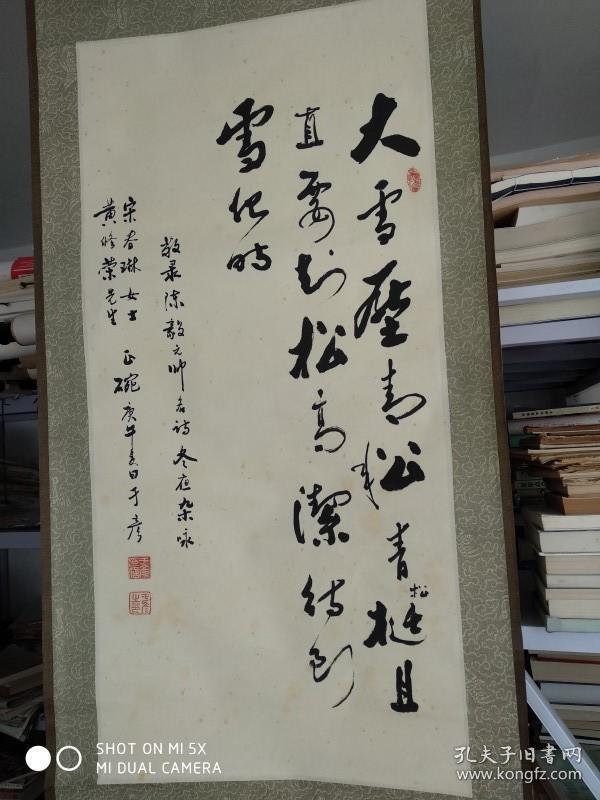 大雪壓青松青松挺且
直要知松高潔待到
雪化時
敬录陈毅元帅名诗冬夜杂咏
宋春琳女士
黄修荣先生
正 庚午 日于彦
SHOT ON MI 5X
MI DUAL CAMERA
孔夫子旧书网
www.kongfz.com